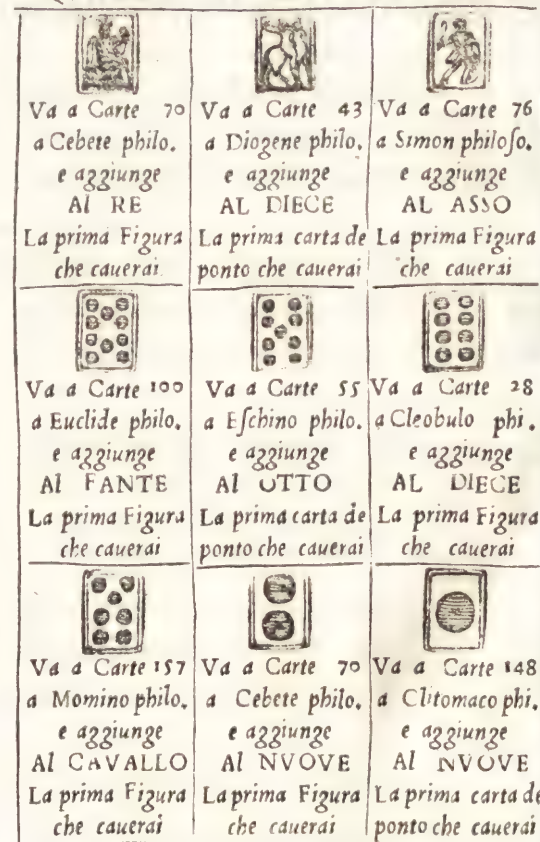 Va a Carte 70
a Cebete philo.
e aggiunge
Al RE
La prima Figura
che cauerai
Va a Carte 43
a Diogene philo.
e aggiunge
AL DIECE
La prima carta de
ponto che cauerai
Va a Carte 76
a Simon philoſo.
e aggiunge
AL ASSO
La prima Figura
che cauerai
Va a Carte 100
a Euclide philo.
e aggiunge
Al FANTE
La prima Figura
che cauerai
Va a Carte 55
a Eſchino philo.
e aggiunge
Al OTTO
La prima carta de
ponto che cauerai
Va a Carte 28
a Cleobulo phi.
e aggiunge
AL DIECE
La prima Figura
che cauerai
Va a Carte 157
a Momino philo.
e aggiunge
Al CAVALLO
La prima Figura
che cauerai
Va a Carte 70
a Cebete philo.
e aggiunge
Al NVOVE
La prima Figura
che cauerai
Va a Carte 148
a Clitomaco phi.
e aggiunge
Al NVOVE
La prima carta de
ponto che cauerai